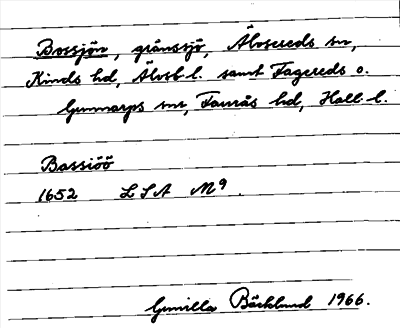 Bossjön, gränssjö, Älvsereds sn,
Kinds hd, Älvsb. l. samt Fagereds o.
Gunnarps snr, Faurås hd, Hall. l.
Bassiöö
1652 LSA M9.
Gunilla Bäcklund 1966.